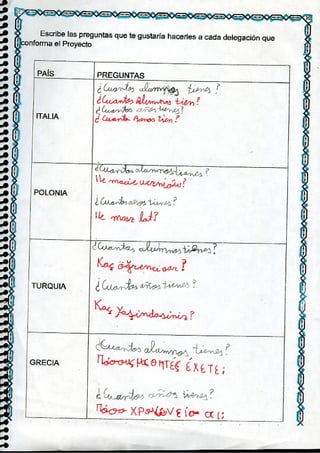 Escribe las preguntas que te gustaría hacerles a cada delegación que
conforma el Proyecto
PAÍS
PREGUNTAS
ITALIA
¿Cuantos alumnos tienes?
¿Cuantos alumnos tien?
¿Cuantos años tienes?
¿Cuantos Anos tien?
POLONIA
¿Cuantos alumnos tienes?
Ile macie uczniów?
¿Cuantos años tienes?
Ile masz lat?
TURQUIA
¿Cuantos alumnos tienes?
Kaç öğrencin var?
¿Cuantos años tienes?
Kaç yaşındasınız?
GRECIA
¿Cuantos alumnos tienes?
Πόσους μαθητές έχετε;
¿Cuantos años tienes?
Πόσο χρονών